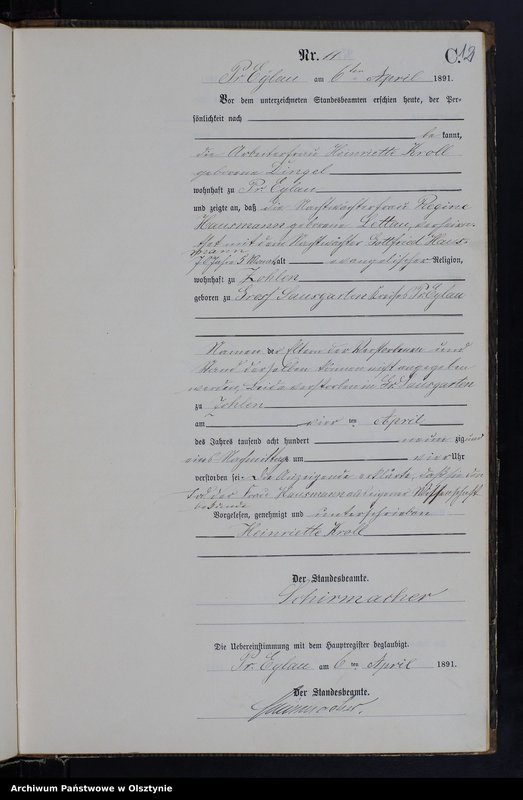 Nr. 11
C. 12
Pr. Eylau am 6ten April 1891.
Vor dem unterzeichneten Standesbeamten erschien heute, der Per-
sönlichkeit nach
bekannt,
die Arbeiterfrau Heinriette Kroll
geborene Lingel
wohnhaft zu Pr. Eylau
und zeigte an, daß die Nachtwächterfrau Regine
Hausmann geborene Lettau, verheira-
thet mit dem Nachtwächter Gottfried Haus-
mann
70 Jahre 5 Monat alt evangelischer Religion,
wohnhaft zu Zohlen
geboren zu Groß Saurgarten Kreises Pr. Eylau
Namen der Eltern der Verstorbenen und
Stand derselben können nicht angegeben
werden, beide verstorben in Gr. Saurgarten
zu Zohlen
am vier ten April
des Jahres tausend acht hundert neun zig und
eins Nachmittags um vier Uhr
verstorben sei. Die Anzeigende erklärte, daß sie von
Tod der Frau Hausmann aus eigener Wissenschaft
Vorgelesen, genehmigt und unterschrieben
Heinriette Kroll
Der Standesbeamte.
Schirmacher
Die Uebereinstimmung mit dem Hauptregister beglaubigt.
Pr. Eylau am 6ten April 1891.
Der Standesbeamte.
Schirmacher.
Archiwum Państwowe w Olsztynie